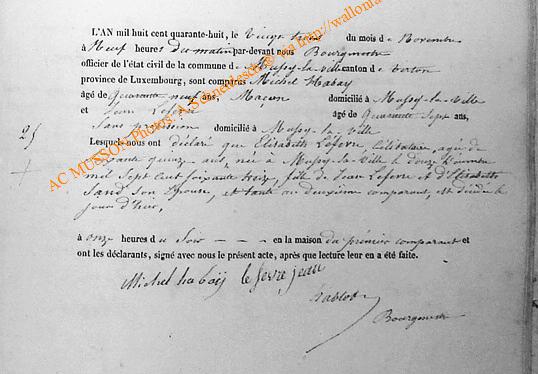 L'AN mil huit cent quarante-huit, le vingt trois du mois de Novembre
à Neuf heures du matin par-devant nous Bourgmestre
officier de l'état civil de la commune de Mussy-la-ville canton de Virton
province de Luxembourg, sont comparus Michel Habay
âgé de quarante neuf ans, Maçon domicilié à Mussy-la-Ville
et Jean Lefevre âgé de quarante sept ans,
Sans profession domicilié à Mussy-la-Ville
25 Lesquels nous ont déclaré que Elisabeth Lefevre, célibataire, agée de
soixante quinze ans, née à Mussy-la-Ville le douze
mil sept cent soixante treize, fille de Jean Lefevre et d'Elisabeth
Sand son épouse, et tante au deuxième comparant, est décédée le
jour d'hier,
à onze heures du Soir - - - en la maison du premier comparant et
ont les déclarants, signé avec nous le présent acte, après que lecture leur en a été faite.
Michel habaÿ lefevre jean
Bourgmestre
AC MUSSON Photos: A.Schneidesch© via http://wallonia